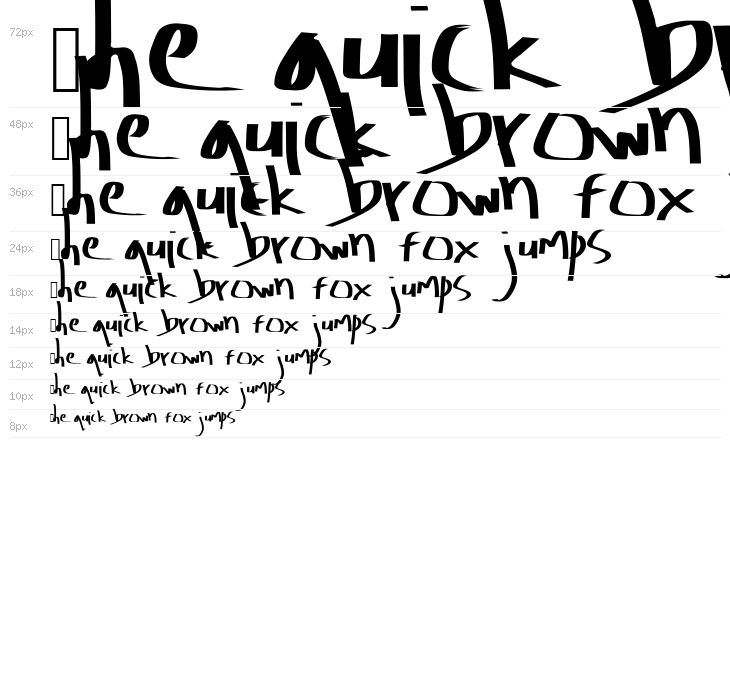 72px ▯he quick br
48px ▯he quick brown
36px ▯he quick brown fox
24px ▯he quick brown fox jumps
18px ▯he quick brown fox jumps
14px ▯he quick brown fox jumps
12px ▯he quick brown fox jumps
10px ▯he quick brown fox jumps
8px ▯he quick brown fox jumps